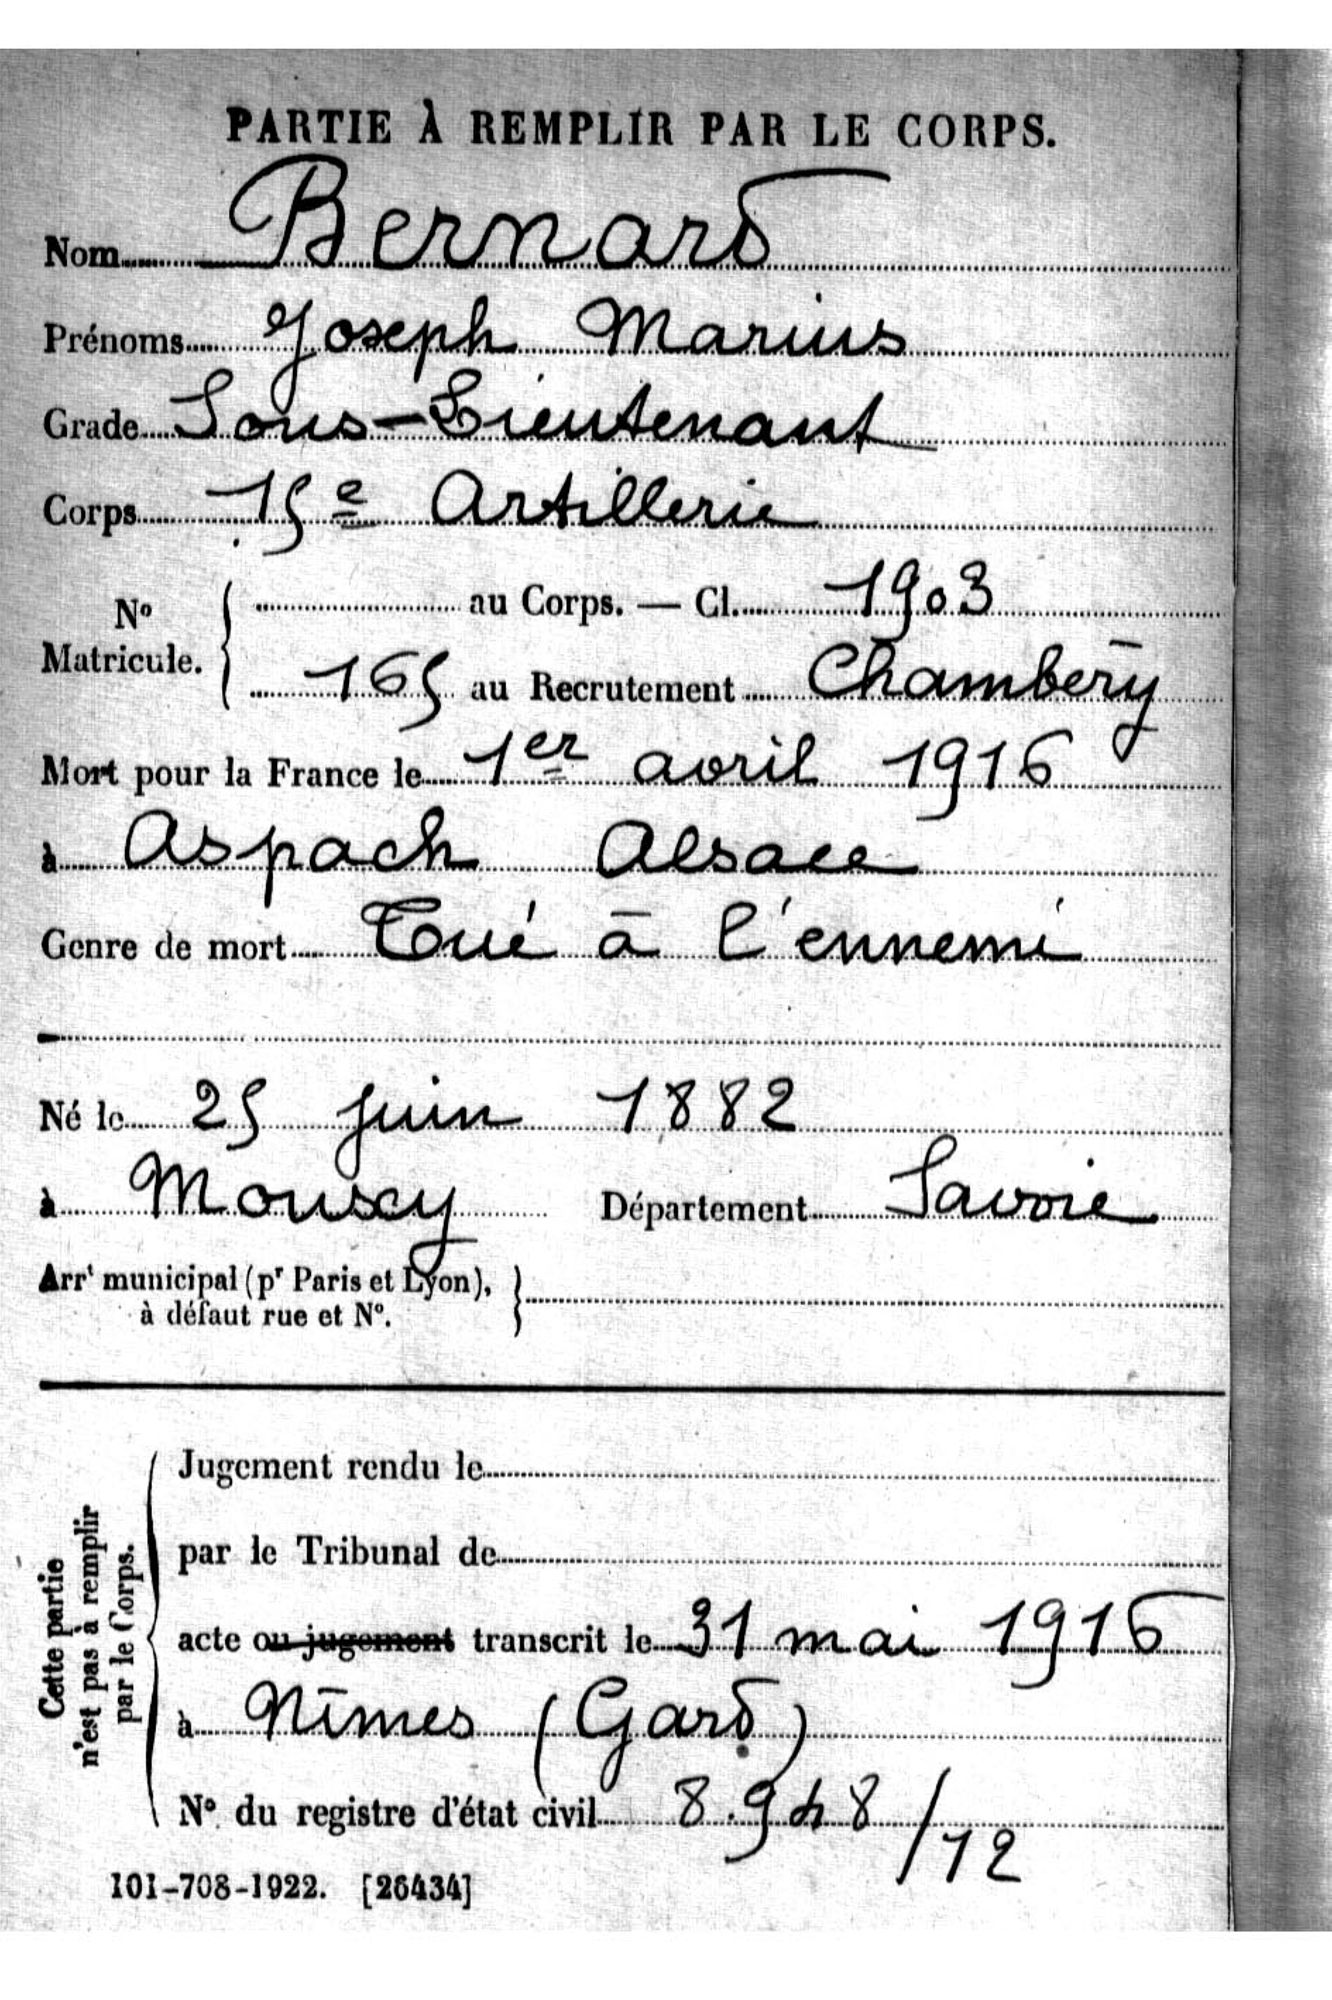 PARTIE À REMPLIR PAR LE CORPS.
Nom Bernard
Prénoms Joseph Marius
Grade Sous-Lieutenant
Corps 15e Artillerie
No Matricule. { au Corps. — Cl. 1903
165 au Recrutement Chambéry
Mort pour la France le 1er avril 1916
à Aspach Alsace
Genre de mort Tué à l'ennemi
Né le 25 juin 1882
à Mouxy Département Savoie
Arrt municipal (pr Paris et Lyon),
à défaut rue et No. }
Cette partie
n'est pas à remplir
par le Corps.
Jugement rendu le
par le Tribunal de
acte ou jugement transcrit le 31 mai 1916
à Nîmes (Gard)
No du registre d'état civil 8.948/12
101-708-1922. [26434]